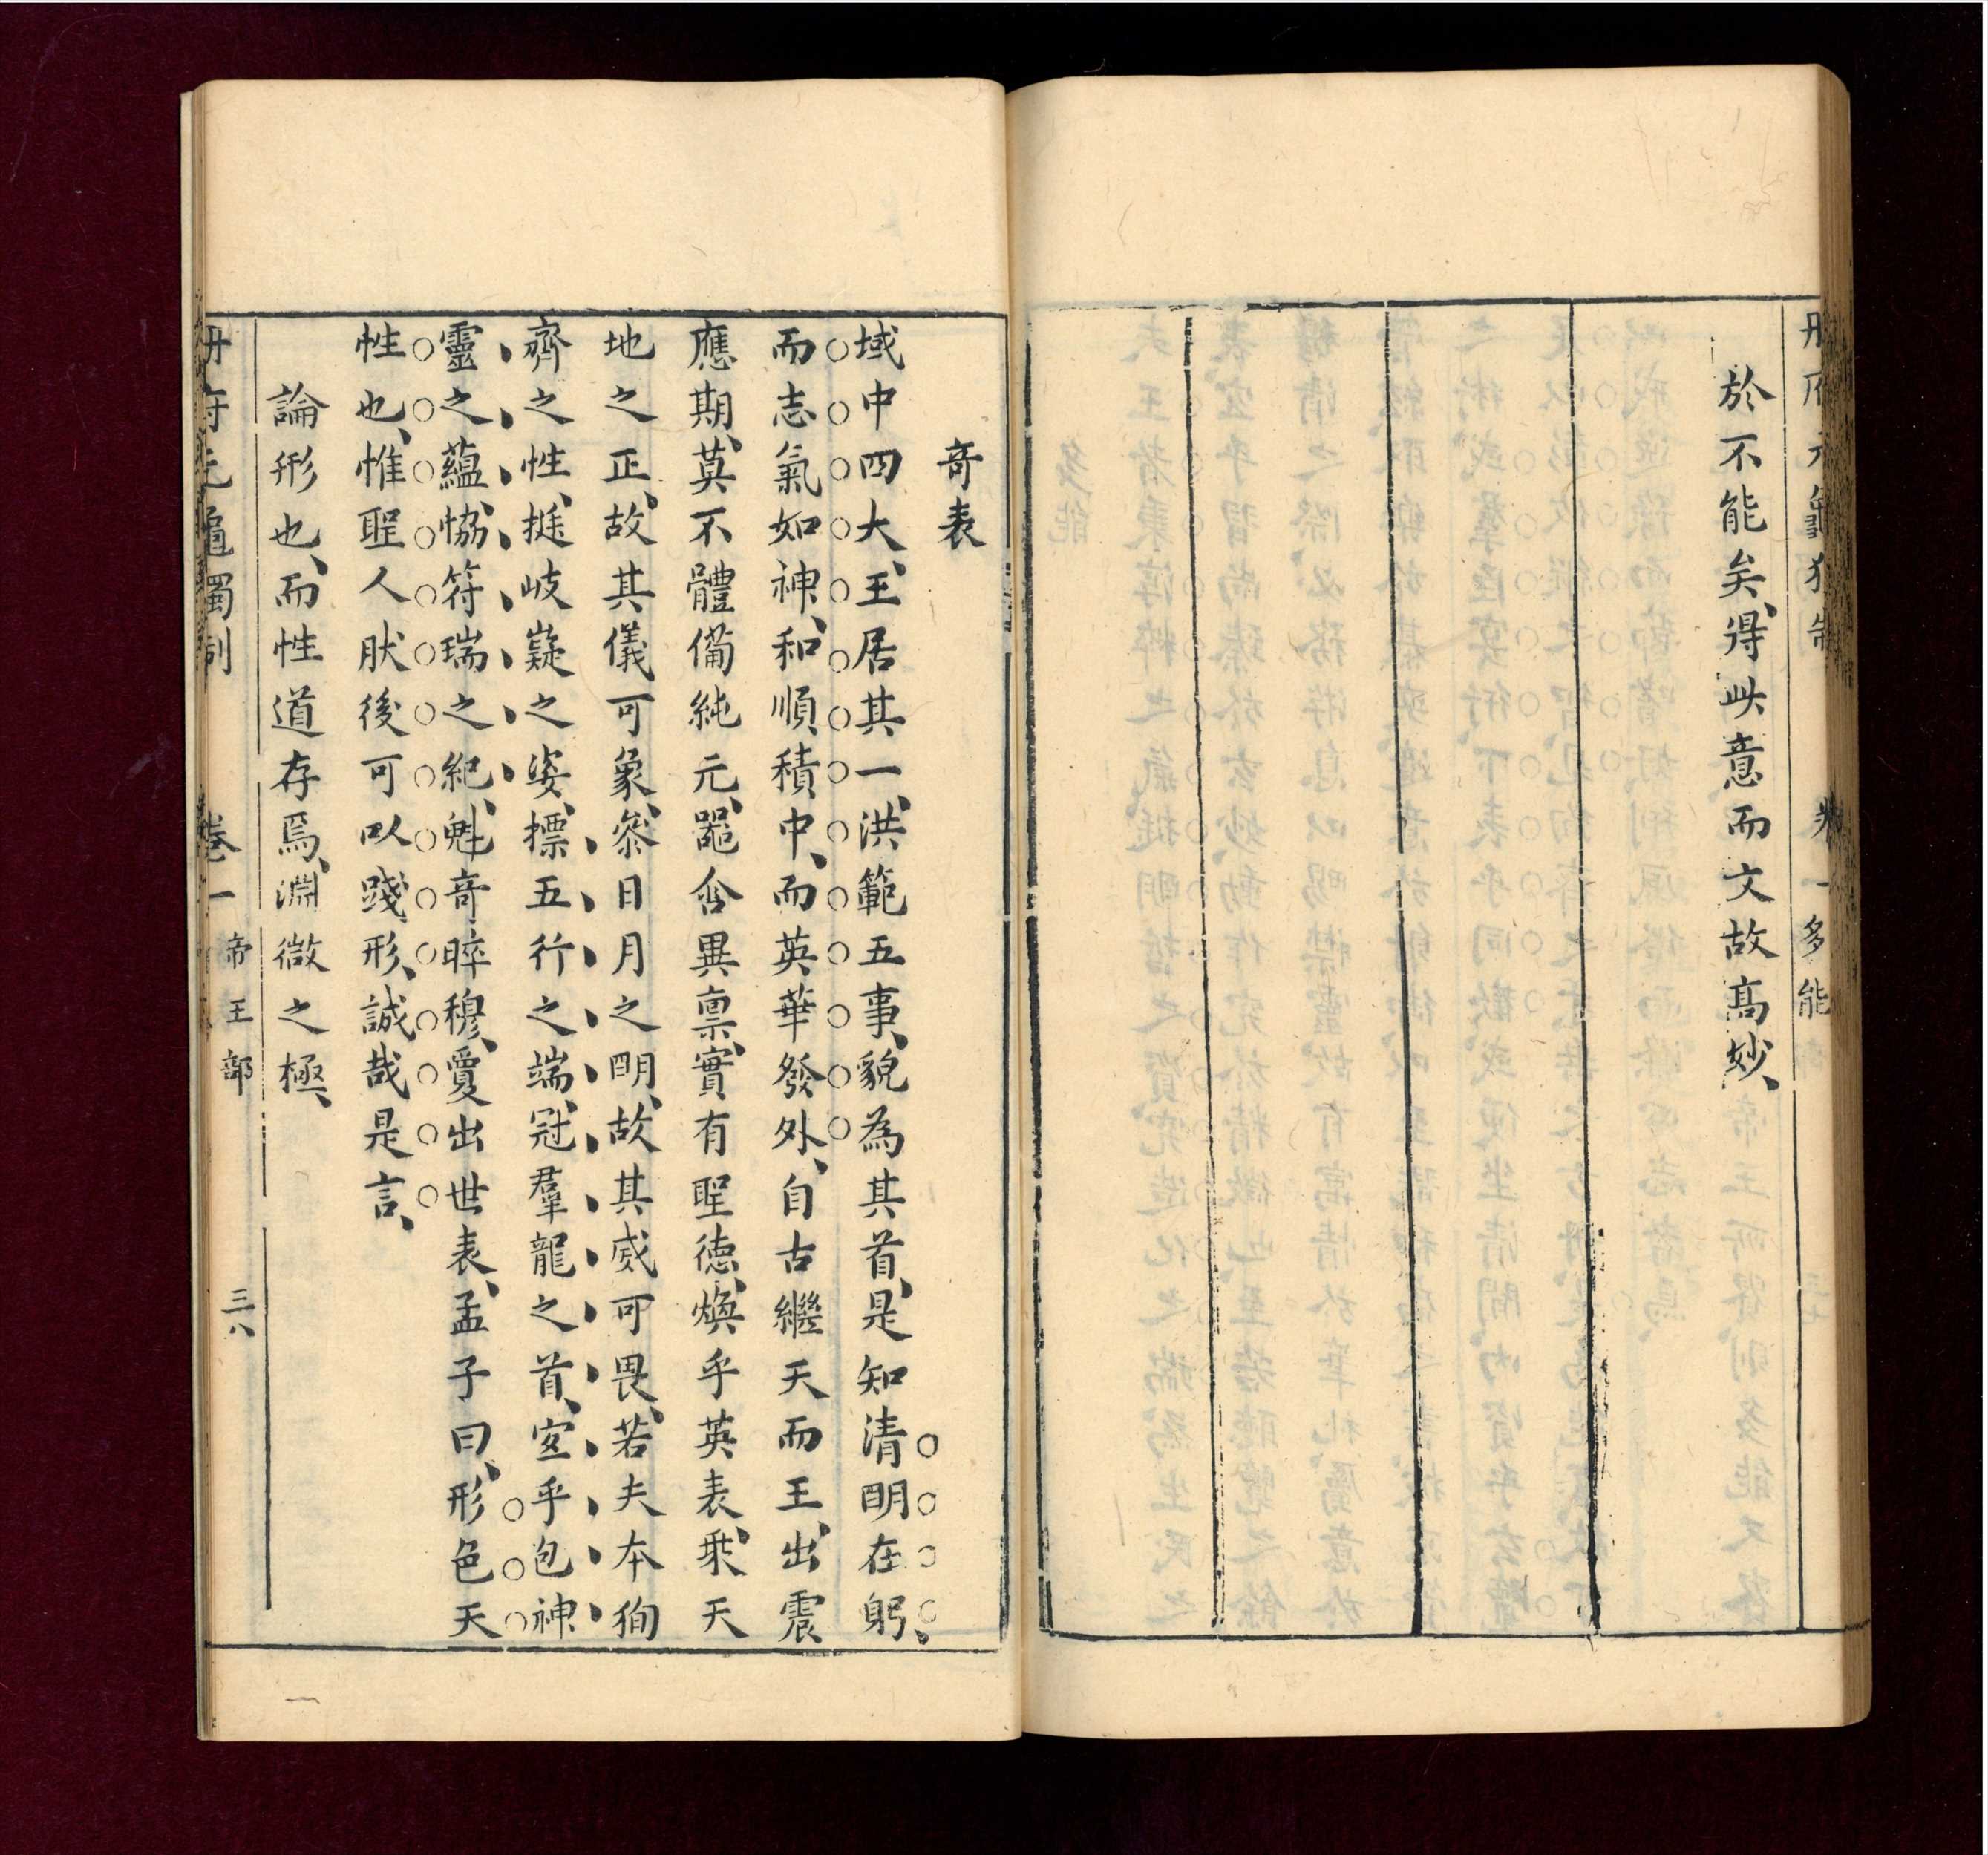 於不能矣、得此意而文故高妙、
多能
奇表
域中四大、王居其一、洪範五事、貌為其首、是知清明在躬、
而志氣如神、和順積中、而英華發外、自古繼天而王、出震
應期、莫不體備純元、器含異稟、實有聖德、煥乎英表、乘天
地之正、故其儀可象、叅日月之明、故其威可畏、若夫本徇
齊之性、挺岐嶷之姿、摽五行之端、冠羣龍之首、寔乎包神
靈之蘊、恊符瑞之紀、魁奇晬穆、敻出世表、孟子曰、形色天
性也、惟聖人肰後可以踐形、誠哉是言、
論形也、而性道存焉、淵微之極、
冊府元龜獨制 卷一 帝王部 三八